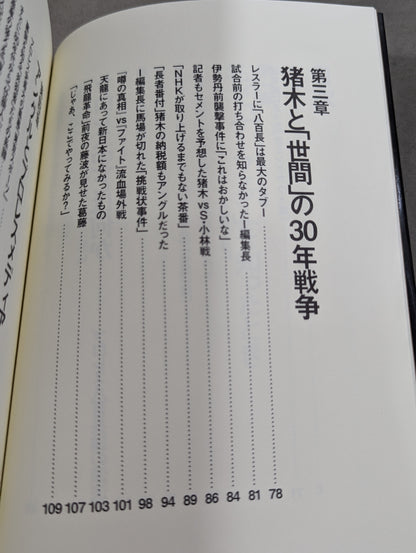 第三章
猪木と「世間」の30年戦争
レスラーに「八百長」は最大のタブー……78
試合前の打ち合わせを知らなかったI編集長……81
伊勢丹前襲撃事件に「これはおかしいな」……84
記者もセメントを予想した猪木vsS・小林戦……86
「NHKが取り上げるまでもない茶番」……89
「長者番付」猪木の納税額もアングルだった……94
I編集長に馬場が切れた「一揆戦状事件」……98
「噂の真相」vs「ファイト」流血場外戦……101
天龍にあって新日本になかったもの……103
「飛龍革命」前夜の藤波が見せた葛藤……107
「じゃあ、ここでやってみるか?」……109